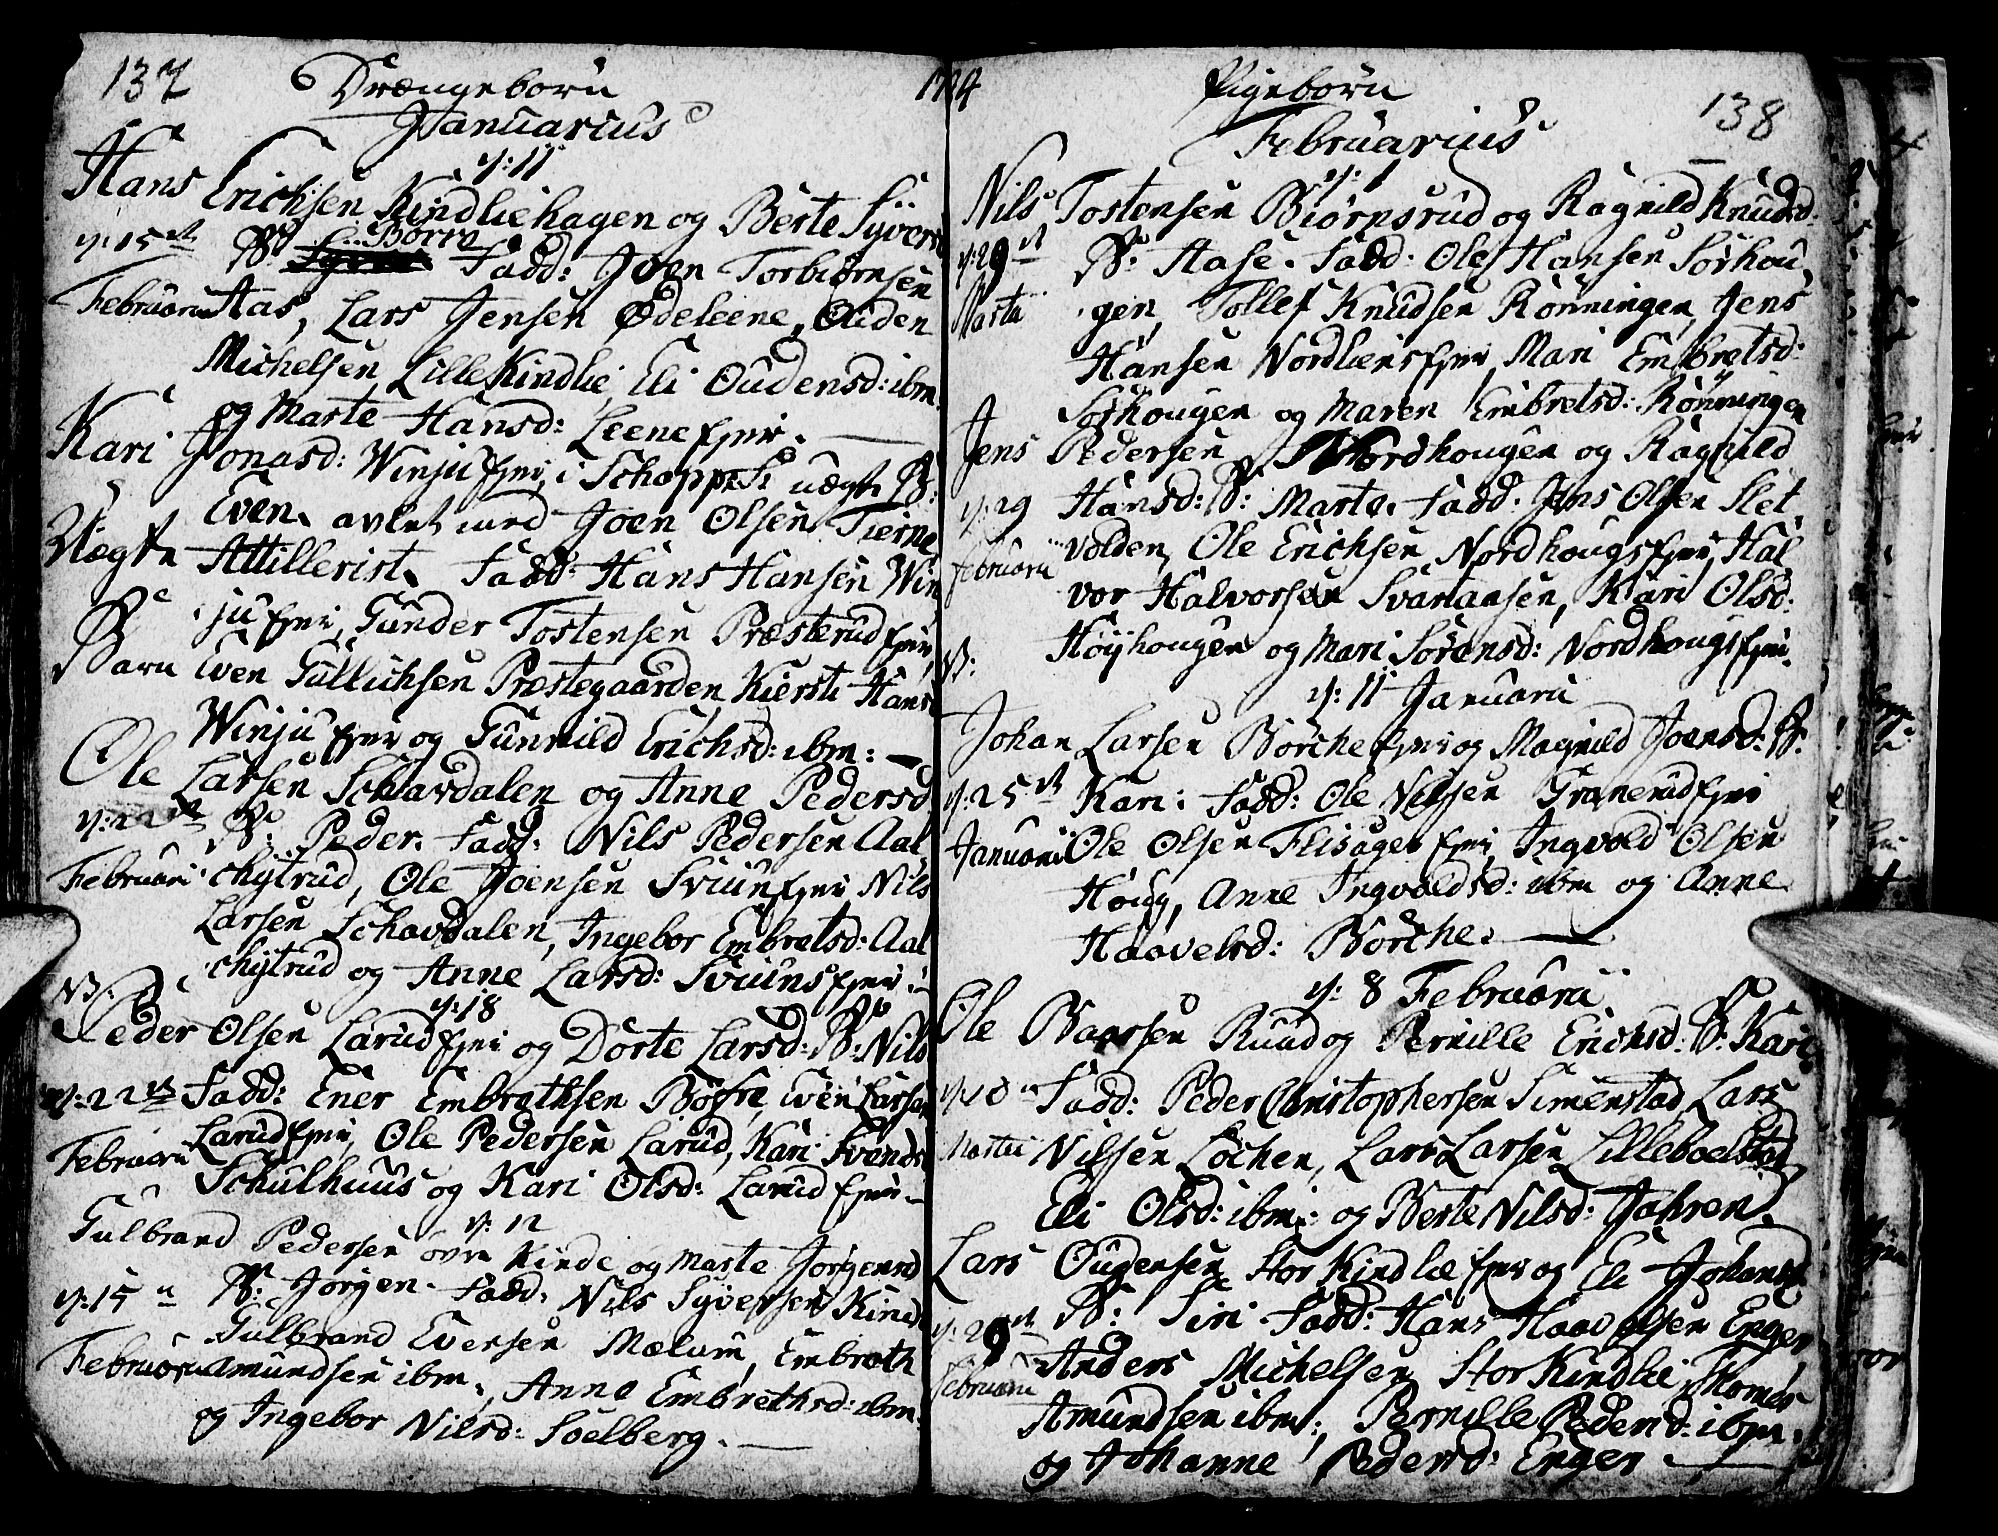 137
Drængebørn
Januarius
d: 11
Hans Erichsen Kindliehagen og Berte Syvers
d: 15de B: Børre Fadd: Joen Torbiørnsen
Februarii Aas, Lars Jensen Ødeleene, Ouden
Michelsen Lille Kindlie, Eli Oudensd: ibm
og Marte Hansd: Leene Ejer.
Kari Jonasd: Winju Ejer i Schoppes uægte B:
Even, avlet med Joen Olsen Tierne
Uægte Attillerist. Fadd: Hans Hansen Win
B ju Ejer, Gunder Tostensen Præsterud Ejer,
Barn Even Gullichsen Præstegaarden, Kiersti Hansd
Winju Ejer og Gunnild Erichsd: ibm:
Ole Larsen Schavdalen og Anne Pedersd
d: 22de B: Peder. Fadd: Nils Pedersen Aal
Februarii chytrud, Ole Joensen Sviun Ejer Nils
Larsen Schavdalen, Ingebor Embretsd: Aal
chytrud og Anne Larsd: Sviuns Ejer
NB: d: 18
Peder Olsen Larud Ejer og Dorte Larsd: B: Nils
d: 22de Fadd: Ener Embrethsen Bøfre, Even Larsen
Larud Ejer, Ole Pedersen Larud, Kari Svends
Februarii Schulhuus og Kari Olsd: Larud Ejer
d: 12
Gulbrand Pedersen øvre Kinde og Marte Jørgensd
d: 15 B: Jørgen. Fadd: Nils Syversen Kinde
Gulbrand Eversen Mælum, Embreth
Februarii Amundsen ibm, Anne Embrethsd: ibm.
og Ingebor Nilsd: Soelberg.
1784
Pigebørn
138
Februarius
d: 1
Nils Tostensen Biørnsrud og Ragnild Knudsd:
d: 29de B: Aase. Fadd: Ole Hansen Sørhou
Martii gen, Tollef Knudsen Rønningen, Jens
Hansen Nordlens Ejer, Mari Embretsd:
Sørhougen og Maren Embretsd: Rønningen
Jens Pedersen Nordhougen og Ragnild
d: 29 Hansd: B: Marte. Fadd: Jens Olsen Slet
Februarii volden, Ole Erichsen Nordhougs Ejer, Hal
vor Halvorsen Svartaasen, Kari Olsd:
NB: Høyhougen og Mari Sørensd: Nordhougs Ejer.
d: 11 Januarii
Johan Larsen Børche Ejer og Magnild Joensd: B:
d: 25de Kari: Fadd: Ole Nilssen Granerud Ejer
Januarii Ole Olsen Flisager Ejer, Ingvold Olsen
Houg, Anne Ingvoldsd: ibm og Anne
Haavelsd: Børche.
d: 8 Februarii
Ole Baarsen Ruud og Pernille Erichsd: B: Kari
d: 10 Fadd: Peder Christophersen Simenstad, Lars
Martii Nilsen Løchen, Lars Larsen Lilleboelstad,
Eli Olsd: ibm: og Berte Nilsd: Jahren.
Lars Oudensen Stor Kindlie Ejer og Eli Johansd
d: 29de B: Siri Fadd: Hans Haavelsen Enger,
Februarii Anders Michelsen Stor Kindlie, Thomes
Amundsen ibm, Pernille Pedersd: ibm.
og Johanne Pedersd: Enger.